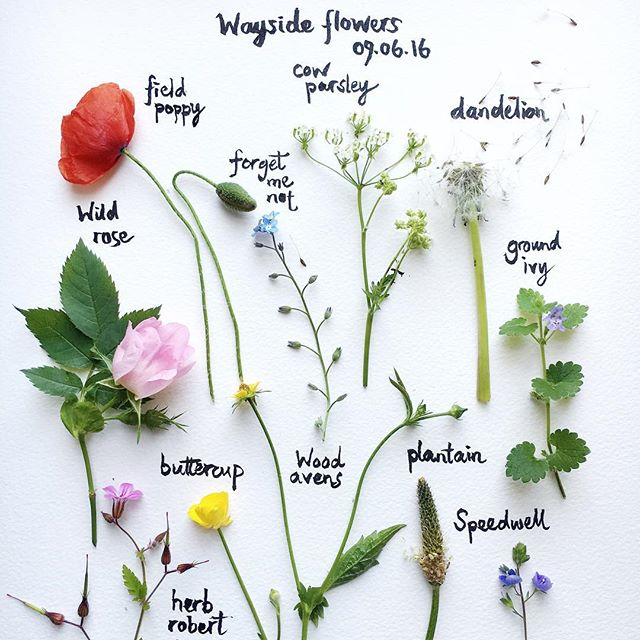 Wayside flowers
09.06.16
cow
parsley
field
poppy
dandelion
forget
me
not
Wild
rose
ground
ivy
buttercup
Wood
avens
plantain
Speedwell
herb
robert